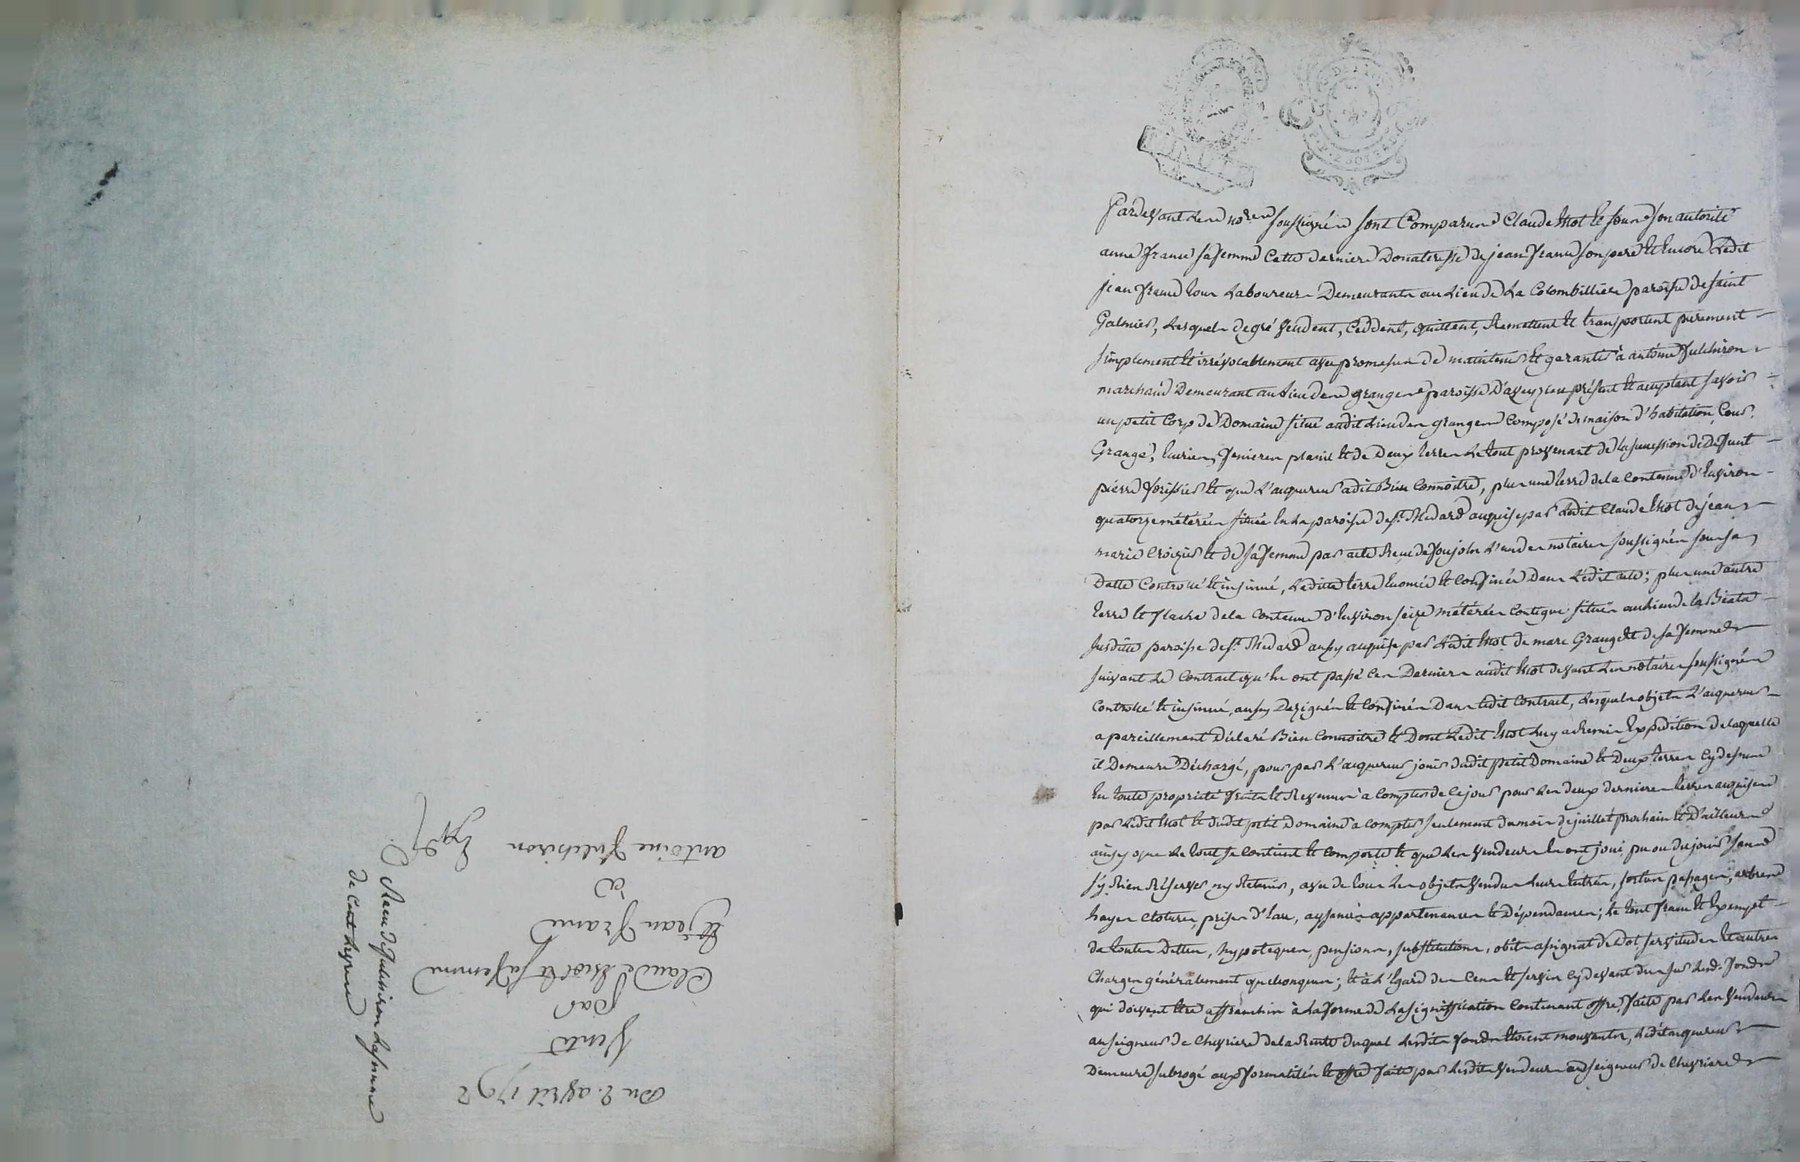 Du 2. avril 1792
Vente
par
Claude Viol & sa femme
& jean Franc
à
antoine Fulchiron
Expé
Receu de Fulchiron la somme
de Cent
Pardevant les no.res soussignés sont Comparus Claude Viol & sous son autorité
anne Franc sa femme Cette derniere Donateresse de jean Franc son pere & Encore Ledit
jean Franc tous Laboureurs Demeurants au Lieu de La Colombilliere paroisse de saint
Galmier, Lesquels de gré Vendent, Ceddent, quittent, Remettent & transportent purement
simplement & irrévocablement avec promesse de maintenir & garantir à antoine Fulchiron
marchand Demeurant au Lieu des granges paroisse D'aveyzieu présent & acceptant savoir
un petit Corp de Domaine situé audit Lieu des granges Composé de maison d'habitation, Cour,
Grange, Ecuries, Fenieres, & de Deux terres Le tout provenant de la succession de Defunt
pierre & que L'acquereur a dit Bien Connoitre, plus une terre de la Contenue d'Environ
quatorze méterées située En La paroisse de s.t Medard acquise par Ledit Claude Viol de jean
marie & de sa femme par acte Receu L'un des notaires soussignés sous sa
Datte Controllé & insinué, Laditte terre & Confinée Dans Ledit acte; plus une autre
terre & de la Contenue d'Environ seize méterées Contigue située au Lieu de la
susditte paroisse de s.t Medard aussy acquise par Ledit Viol de marc Granget & de sa femme
suivant Le Contrat qu'En ont passé Ces Derniers audit Viol devant Les notaires soussignés
Controllé & insinué, aussy Dezignés & Confinés Dans Ledit Contrat, Lesquels objets L'acquereur
a pareillement Déclaré Bien Connoitre & Dont Ledit Viol Luy a Remis Expédition de laquelle
il Demeure Déchargé, pour par L'acquereur jouir dudit petit Domaine & Deux terres Cy dessus
En toute propriété fruits & Revenus à Compter de Ce jour pour Les deux dernieres terres acquises
par Ledit Viol & dudit petit Domaine à Compter seulement du mois de juillet prochain & D'ailleurs
ainsy que Le tout se Contient & Comporte & que Les Vendeurs En ont joui, pu ou du jouir sans
s'y Rien Réserver ny Retenir, avec de tous Les objets Vendus Leurs Entrées, sorties passages, arbres
hayes Clotures, prises d'Eau, aysances appartenances & Dépendances; Le tout franc & Exempt
de toutes Dettes, hypoteques, pensions, substitutions, obits asignat de Dot, servitudes & autres
Charges généralement quelconques; & à L'Egard des Cens & servis Cy devant dus sur Lesd. Fonds
qui doivent Etre affranchis à La forme de La signiffication Contenant offre faite par Les Vendeurs
au seigneur de Chevrieres de la Rente duquel Lesdits Fonds Etoient mouvants, Ledit acquereur
Demeure subrogé aux formalités & offre faite par Lesdits Vendeurs aud seigneur de Chevrieres